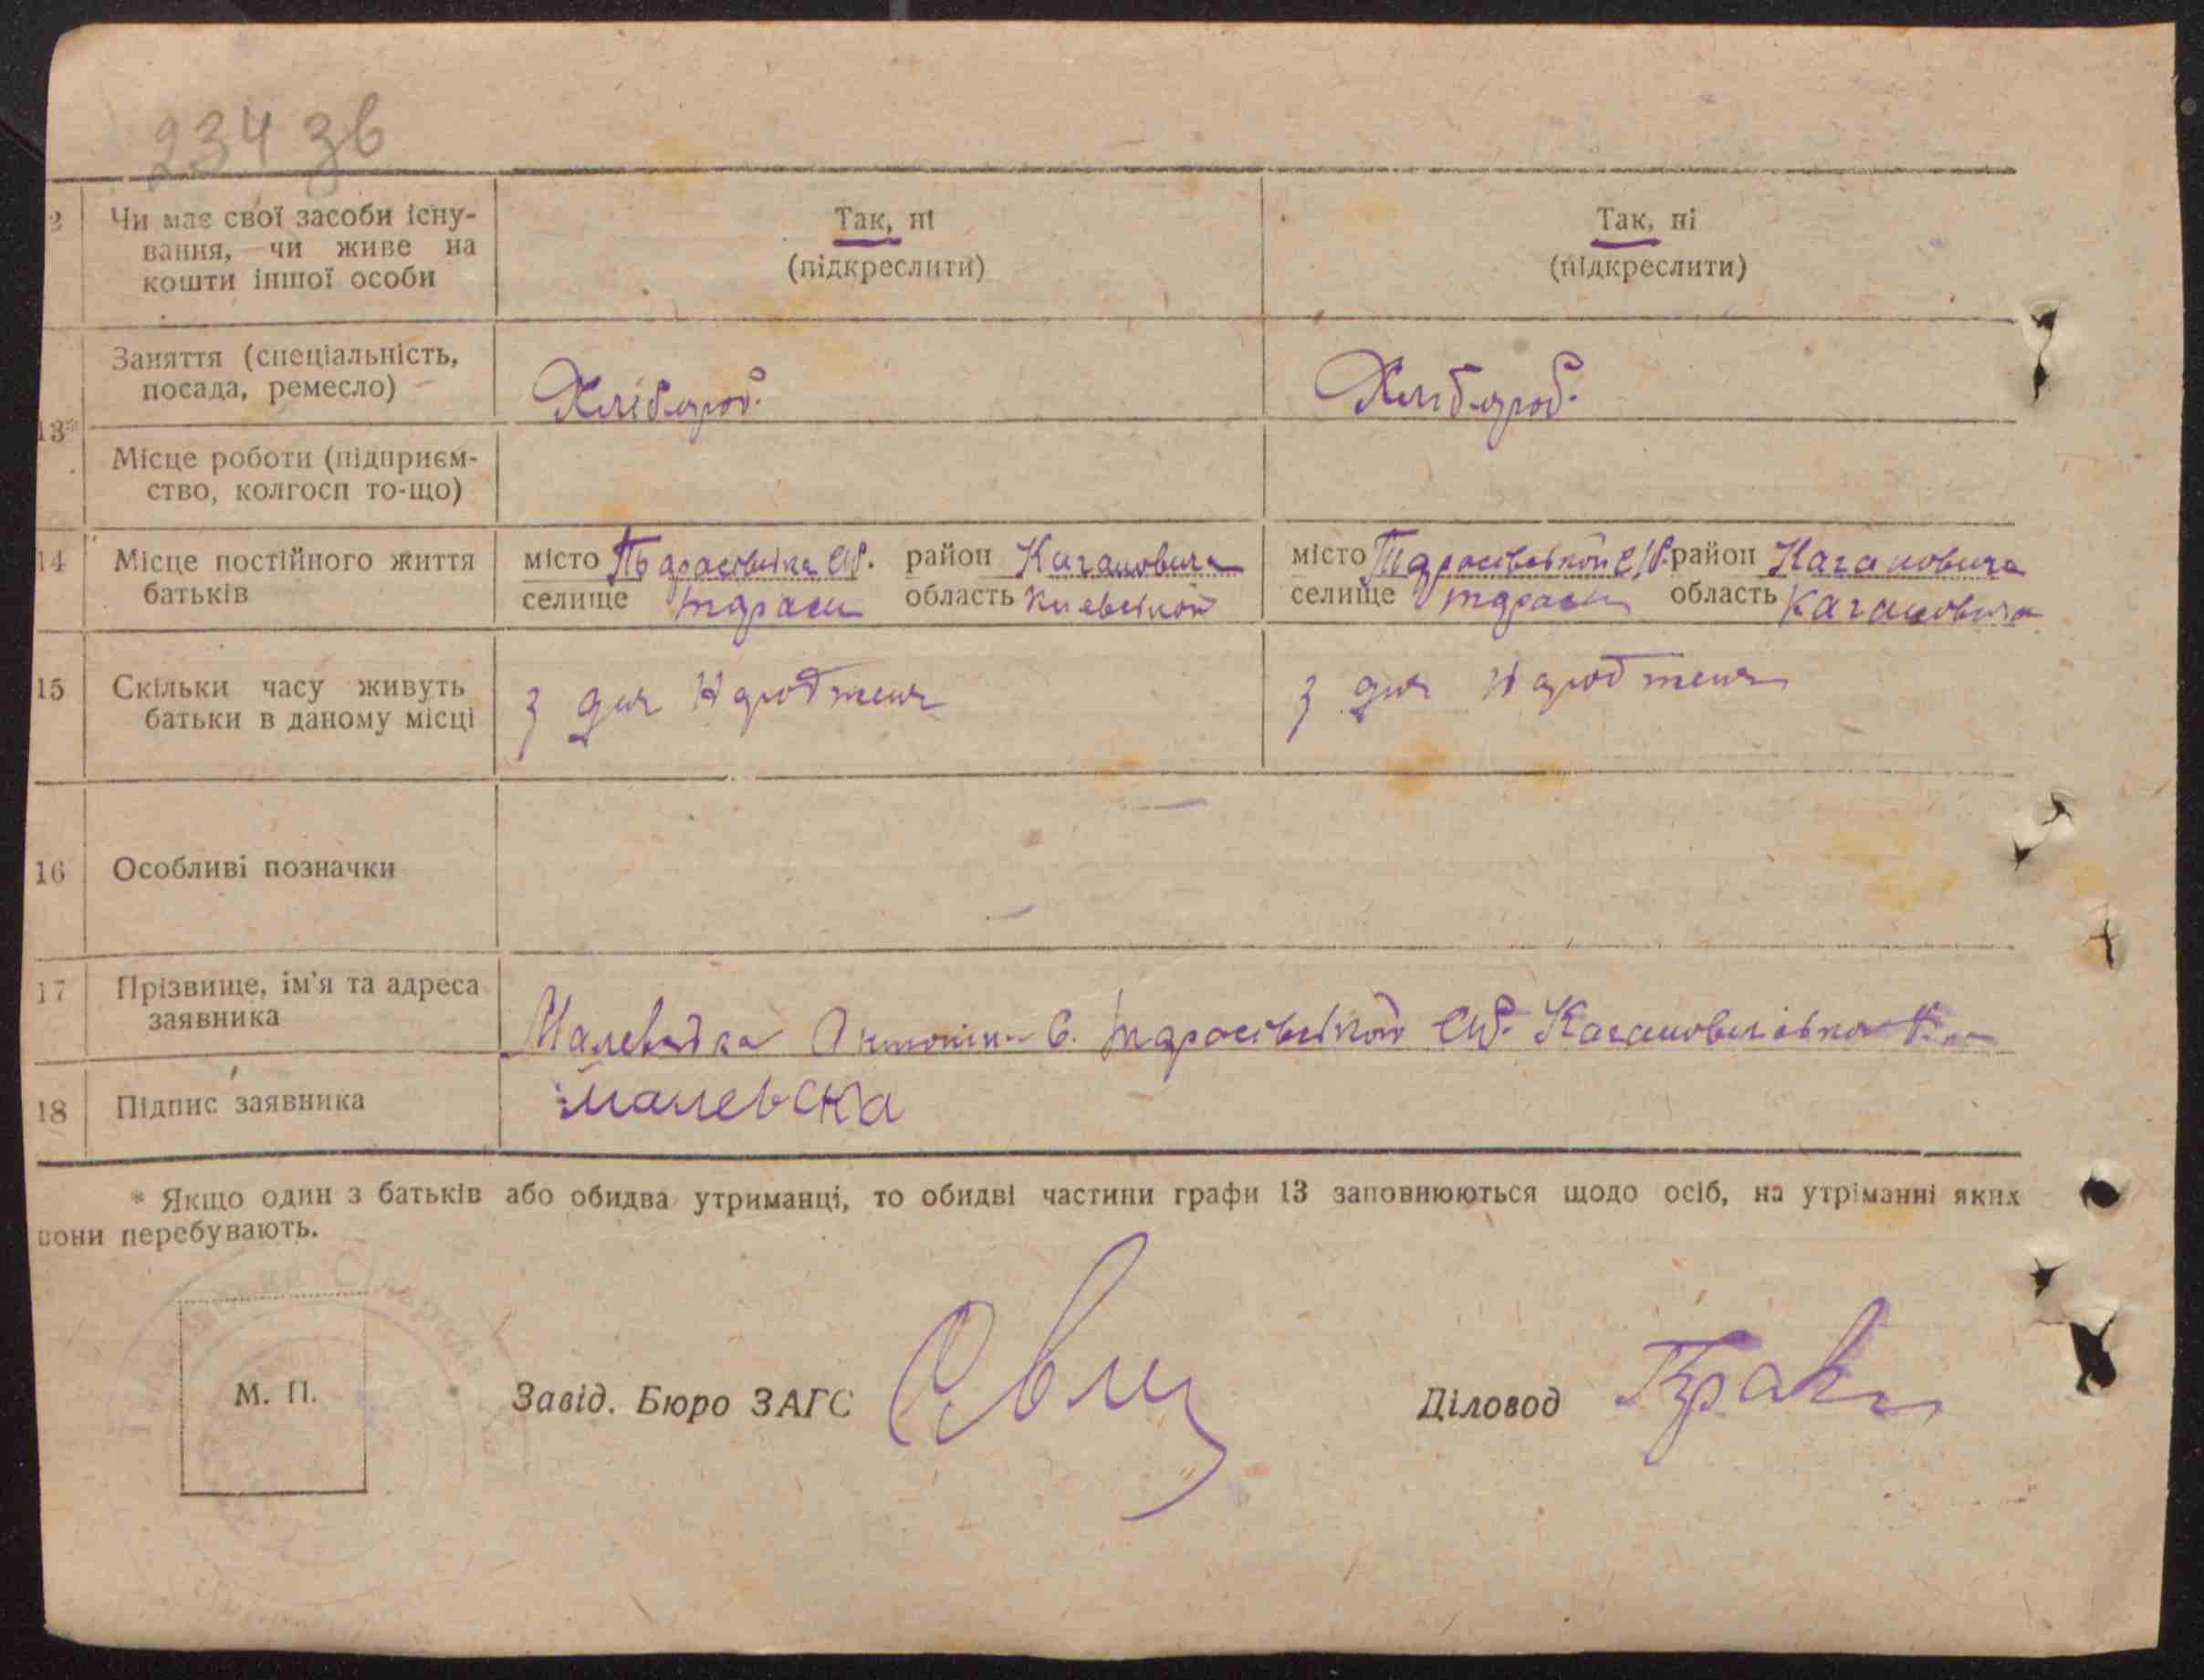 234 зв
2 Чи має свої засоби існу-
вання, чи живе на
кошти іншої особи
Так, ні
(підкреслити)
Так, ні
(підкреслити)
13* Заняття (спеціальність,
посада, ремесло)
Хлібороб.
Хлібороб.
Місце роботи (підприєм-
ство, колгосп то-що)
14 Місце постійного життя
батьків
місто район Кагановича
селище область Київській
місто район Кагановича
селище область Кагановича
15 Скільки часу живуть
батьки в даному місці
З дня народження
З дня народження
16 Особливі позначки
17 Прізвище, ім'я та адреса
заявника
Малевська
18 Підпис заявника
Малевска
* Якщо один з батьків або обидва утриманці, то обидві частини графи 13 заповнюються щодо осіб, на утріманні яких
вони перебувають.
М. П.
Завід. Бюро ЗАГС
Діловод